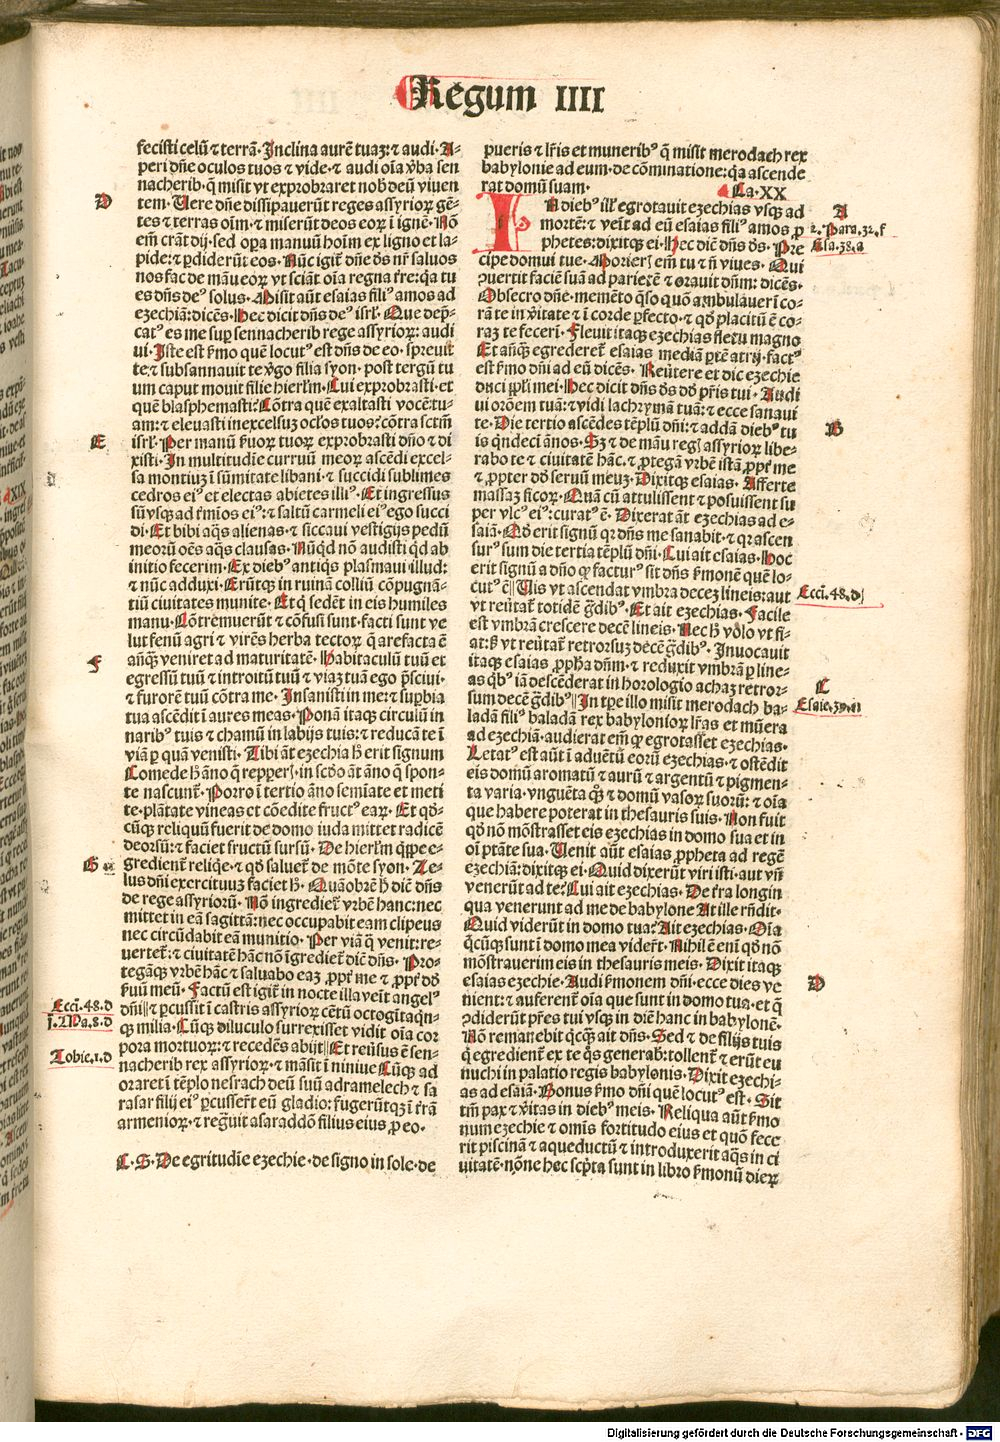 Regum IIII
fecisti celū ⁊ terrā. Inclina aurē tuaꝫ: ⁊ audi. A-
peri dn̄e oculos tuos ⁊ vide. ⁊ audi oīa v̄ba sen
nacherib. q̄ misit vt exprobraret nob̄ deū viuen
D
tem. Uere dn̄e dissipauerūt reges assyrioꝝ gē-
tes ⁊ terras oīm. ⁊ miserūt deos eoꝝ ī ignē. Nō
em̄ crant dij. sed oꝑa manuū hoīm ex ligno et la-
pide: ⁊ ꝑdiderūt eos. Nūc igit̄ dn̄e ds̄ nr̄ saluos
nos fac de māu eoꝝ vt sciāt oīa regna tr̄e: qꝛ tu
es dn̄s de⁹ solus. Misit aūt esaias fili⁹ amos ad
ezechiā: dicēs. Hec dicit dn̄s de⁹ isrl̄. Que dep̄-
cat⁹ es me suꝑ sennacherib rege assyrioꝝ: audi
ui. Iste est s̄mo quē locut⁹ est dn̄s de eo. spreuit
te ⁊ subsannauit te v̄go filia syon. post tergū tu
um caput mouit filie hierl̄m. Cui exprobrasti. et
quē blasphemasti? Cōtra quē exaltasti vocē tu-
am: ⁊ eleuasti in excelsuꝫ ocl̄os tuos? cōtra sctm̄
E
isrl̄. Per manū s̄uoꝝ tuoꝝ exprobrasti dn̄o ⁊ di
xisti. In multitudīe curruū meoꝝ ascēdi excel-
sa montiuꝫ ī sūmitate libani. ⁊ succidi sublimes
cedros ei⁹ et electas abietes illi⁹. Et ingressus
sū vsqꝫ ad t̄mīos ei⁹: ⁊ saltū carmeli ei⁹ ego succi
di. Et bibi aq̄s alienas. ⁊ siccaui vestigijs pedū
meorū oēs aq̄s clausas. Nūqd nō audisti qd ab
initio fecerim. Ex dieb⁹ antiq̄s plasmaui illud:
⁊ nūc adduxi. Erūtqꝫ in ruinā colliū cōpugnā-
tiū ciuitates munite. Et q̄ sedēt in eis humiles
manu. Cōtremuerūt ⁊ cōfusi sunt. facti sunt ve
lut fenū agri ⁊ virēs herba tectoꝝ q̄ arefacta ē
F
anteqꝫ veniret ad maturitatē. Habitaculū tuū et
egressū tuū ⁊ introitū tuū ⁊ viaꝫ tuā ego p̄sciui.
⁊ furorē tuū cōtra me. Insanisti in me: ⁊ suꝑbia
tua ascēdit ī aures meas. Ponā itaqꝫ circulū in
narib⁹ tuis ⁊ chamū in labijs tuis: ⁊ reducā te ī
viā ꝑ quā venisti. Tibi āt ezechia h̄ erit signum
Comede h̄ āno q̄ repꝑer̄. in scd̄o āt āno q̄ spon-
te nascunt̄. Porro ī tertio āno semīate et meti
te. plātate vineas et cōedite fruct⁹ eaꝝ. Et qd̄-
cūqꝫ reliquū fuerit de domo iuda mittet radicē
deorsū: ⁊ faciet fructū sursū. De hierl̄m q̄ppe e-
G
gredient̄ reliq̄e. ⁊ qd̄ saluet̄ de mōte syon. Ze-
lus dn̄i exercituuꝫ faciet h̄. Quāobrē h̄ dic̄ dn̄s
de rege assyriorū. Nō ingrediet̄ vrbē hanc: nec
mittet in eā sagittā: nec occupabit eam clipeus
nec circūdabit eā munitio. Per viā q̄ venit: re-
uertet̄: ⁊ ciuitatē hāc nō īgrediet̄ dic̄ dn̄s. Pro-
tegāqꝫ vrbē hāc ⁊ saluabo eaꝫ ꝓpt̄ me ⁊ ꝓpt̄ dd̄
s̄uū meū. Factū est igit̄ in nocte illa venit angel⁹
Ecci. 48. d
dn̄i ⁊ ꝑcussit ī castris assyrioꝝ cētū octogītaqn-
j. Ma. 8. d
qꝫ milia. Cūqꝫ diluculo surrexisset vidit oīa cor
pora mortuoꝝ: ⁊ recedēs abijt. Et reūsus ē sen-
Tobie. 1. d
nacherib rex assyrioꝝ. ⁊ māsit ī niniue Cūqꝫ ad
oraret ī tēplo nesrach deū suū adramelech ⁊ sa
rasar filij ei⁹ ꝑcusser̄t eū gladio: fugerūtqꝫ ī t̄rā
armenioꝝ. ⁊ regn̄uit asaraddō filius eius ꝓ eo.
C. S. De egritudīe ezechie. de signo in sole. de
pueris ⁊ lr̄is et munerib⁹ q̄ misit merodach rex
babylonie ad eum. de cōminatione: qꝛ ascende
rat domū suam.
Ca. XX
IN dieb⁹ ill̄ egrotauit ezechias vsqꝫ ad
A
mortē: ⁊ veīt ad eū esaias fili⁹ amos ꝓ
2. Para. 32. f
phetes: dixitqꝫ ei. Hec dic̄ dn̄s ds̄. Pre
Esa. 38. a
cipe domui tue. Morier̄ em̄ tu ⁊ n̄ viues. Qui
ꝯuertit faciē suā ad parietē ⁊ orauit dn̄m: dicēs.
Obsecro dn̄e. memēto q̄so quō ambulauerī co-
rā te in v̄itate ⁊ ī corde ꝑfecto. ⁊ qd̄ placitū ē co-
raꝫ te fecerī. Fleuit itaqꝫ ezechias fletu magno
Et anteqꝫ egrederet̄ esaias mediā ꝑtē atrij. fact⁹
est s̄mo dn̄i ad eū dicēs. Reūtere et dic ezechie
duci ppl̄i mei. Hec dicit dn̄s ds̄ dd̄ pr̄is tui. Audi
ui orōem tuā: ⁊ vidi lachrymā tuā: ⁊ ecce sanaui
te. Die tertio ascēdes tēplū dn̄i: ⁊ addā dieb⁹ tu
B
is q̄ndeci ānos. Sꝫ ⁊ de māu reḡ assyrioꝝ libe-
rabo te ⁊ ciuitatē hāc. ⁊ ꝓtegā vrbē istā ꝓpt̄ me
⁊ ꝓpter dd̄ seruū meuꝫ. Dixitqꝫ esaias. Afferte
massaꝫ ficoꝝ. Quā cū attulissent ⁊ posuissent su
per vlc⁹ ei⁹: curat⁹ ē. Dixerat āt ezechias ad e-
saiā. Qd̄ erit signū qꝛ dn̄s me sanabit. ⁊ qꝛ ascen
sur⁹ sum die tertia tēplū dn̄i. Cui ait esaias. Hoc
erit signū a dn̄o ꝙ factur⁹ sit dn̄s s̄monē quē lo-
cut⁹ ē Uis vt ascendat vmbra deceꝫ lineis: aut
Ecci. 48. d
vt reūtat̄ totidē ḡdib⁹. Et ait ezechias. Facile
est vmbrā crescere decē lineis. Nec h̄ volo vt fi-
at: sꝫ vt reūtat̄ retrorsuꝫ decē ḡdib⁹. Inuocauit
itaqꝫ esaias ꝓph̄a dn̄m. ⁊ reduxit vmbrā ꝑ line-
C
as qb⁹ iā descēderat in horologio achaꝫ retror-
Esaie. 39. a
sum decē ḡdib⁹ In tꝑe illo misit merodach ba-
ladā fili⁹ baladā rex babylonioꝝ lr̄as et mūera
ad ezechiā. audierat em̄ ꝙ egrotasset ezechias.
Letat⁹ est aūt ī aduētū eorū ezechias. ⁊ ostēdit
eis domū aromatū ⁊ aurū ⁊ argentū ⁊ pigmen-
ta varia. vnguēta qꝫ ⁊ domū vasoꝝ suorū: ⁊ oīa
que habere poterat in thesauris suis. Non fuit
qd̄ nō mōstrasset eis ezechias in domo sua et in
oī ptāte sua. Uenit aūt esaias ꝓpheta ad regē
ezechiā: dixitqꝫ ei. Quid dixerūt viri isti. aut vn̄
venerūt ad te? Cui ait ezechias. De t̄ra longin
qua venerunt ad me de babylone At ille rn̄dit.
Quid viderūt in domo tua? Ait ezechias. Oīa
q̄cūqꝫ sunt ī domo mea vider̄t. Nihil ē enī qd̄ nō
mōstrauerim eis in thesauris meis. Dixit itaqꝫ
D
esaias ezechie. Audi s̄monem dn̄i. ecce dies ve
nient: ⁊ auferent̄ oīa que sunt in domo tua. et q̄
ꝯdiderūt pr̄es tui vsqꝫ in diē hanc in babylonē.
Nō remanebit q̄cqꝫ ait dn̄s. Sed ⁊ de filijs tuis
q̄ egredient̄ ex te q̄s generab: tollent̄ ⁊ erūt eu
nuchi in palatio regis babylonis. Dixit ezechi-
as ad esaiā. Bonus s̄mo dn̄i quē locut⁹ est. Sit
tm̄ pax ⁊ v̄itas in dieb⁹ meis. Reliqua aūt s̄mo
num ezechie ⁊ omīs fortitudo eius et quō fece
rit piscinā ⁊ aqueductū ⁊ introduxerit aq̄s in ci
uitatē. nōne hec scp̄ta sunt in libro s̄monū dieꝝ
Digitalisierung gefördert durch die Deutsche Forschungsgemeinschaft - DFG